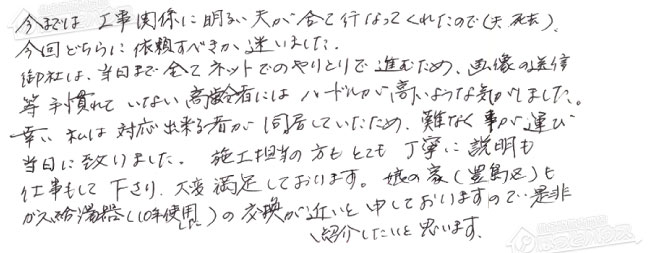 今までは 工事関係に明るい夫が全て行なってくれたので(夫 死去)、
今回どちらに依頼すべきか迷いました。
御社は、当日まで全てネットでのやりとりで進むため、画像の送信
等手慣れていない高齢者にはハードルが高いような気がしました。
幸い私は対応出来る者が同居していたため、難なく事が運び
当日に致りました。 施工担当の方もとても丁寧に説明も
仕事もして下さり、大変満足しております。娘の家(豊島区)も
ガス給湯器(10年使用した)の交換が近いと申しておりますので、是非
紹介したいと思います。